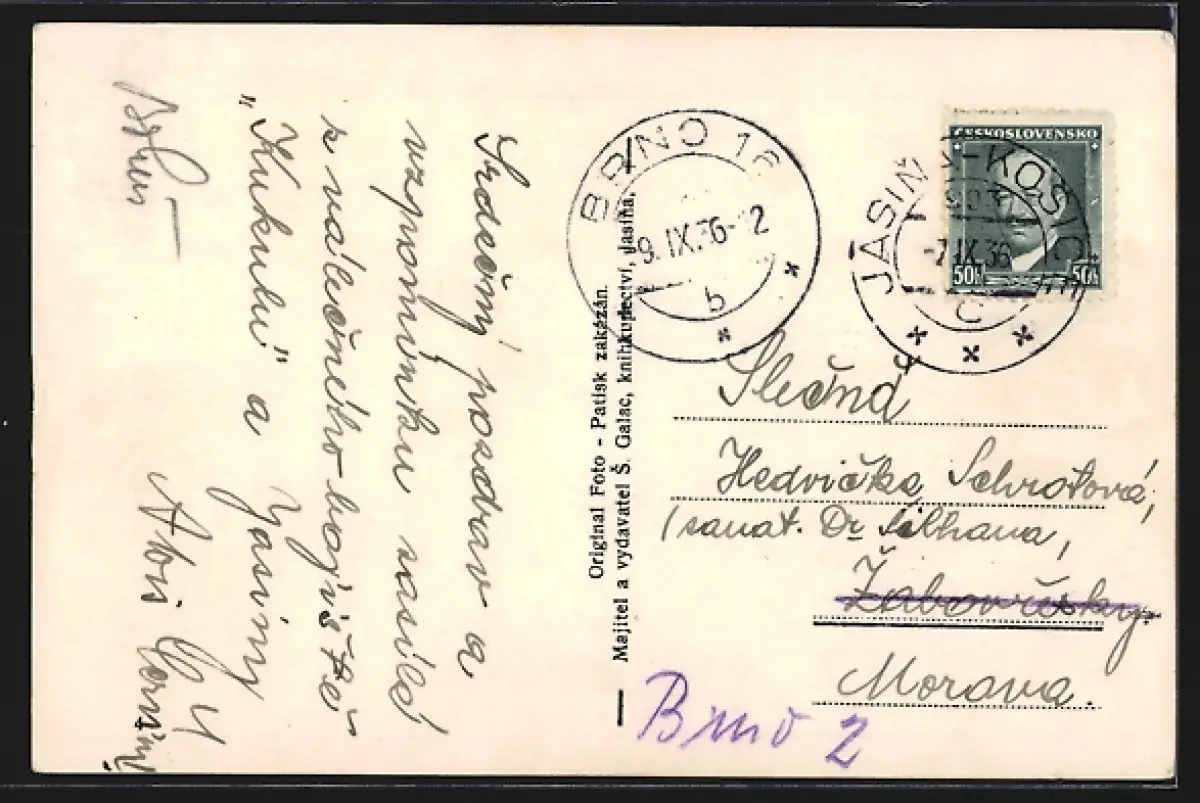 Srdečný pozdrav a
vzpomínku zasílá
z válečného bojiště
"Kukulu" a Jasiny
Original Foto - Patisk zakázán.
Majitel a vydavatel Š. Galac, knihkupectví, Jasiňa.
BRNO 16
9.IX.36-12
b
ČESKOSLOVENSKO
50h 50h
-7.IX.36
C
Slečna
Hedvička Schrotová,
(sanat. Dr
Žabovřesky
Morava.
Brno 2